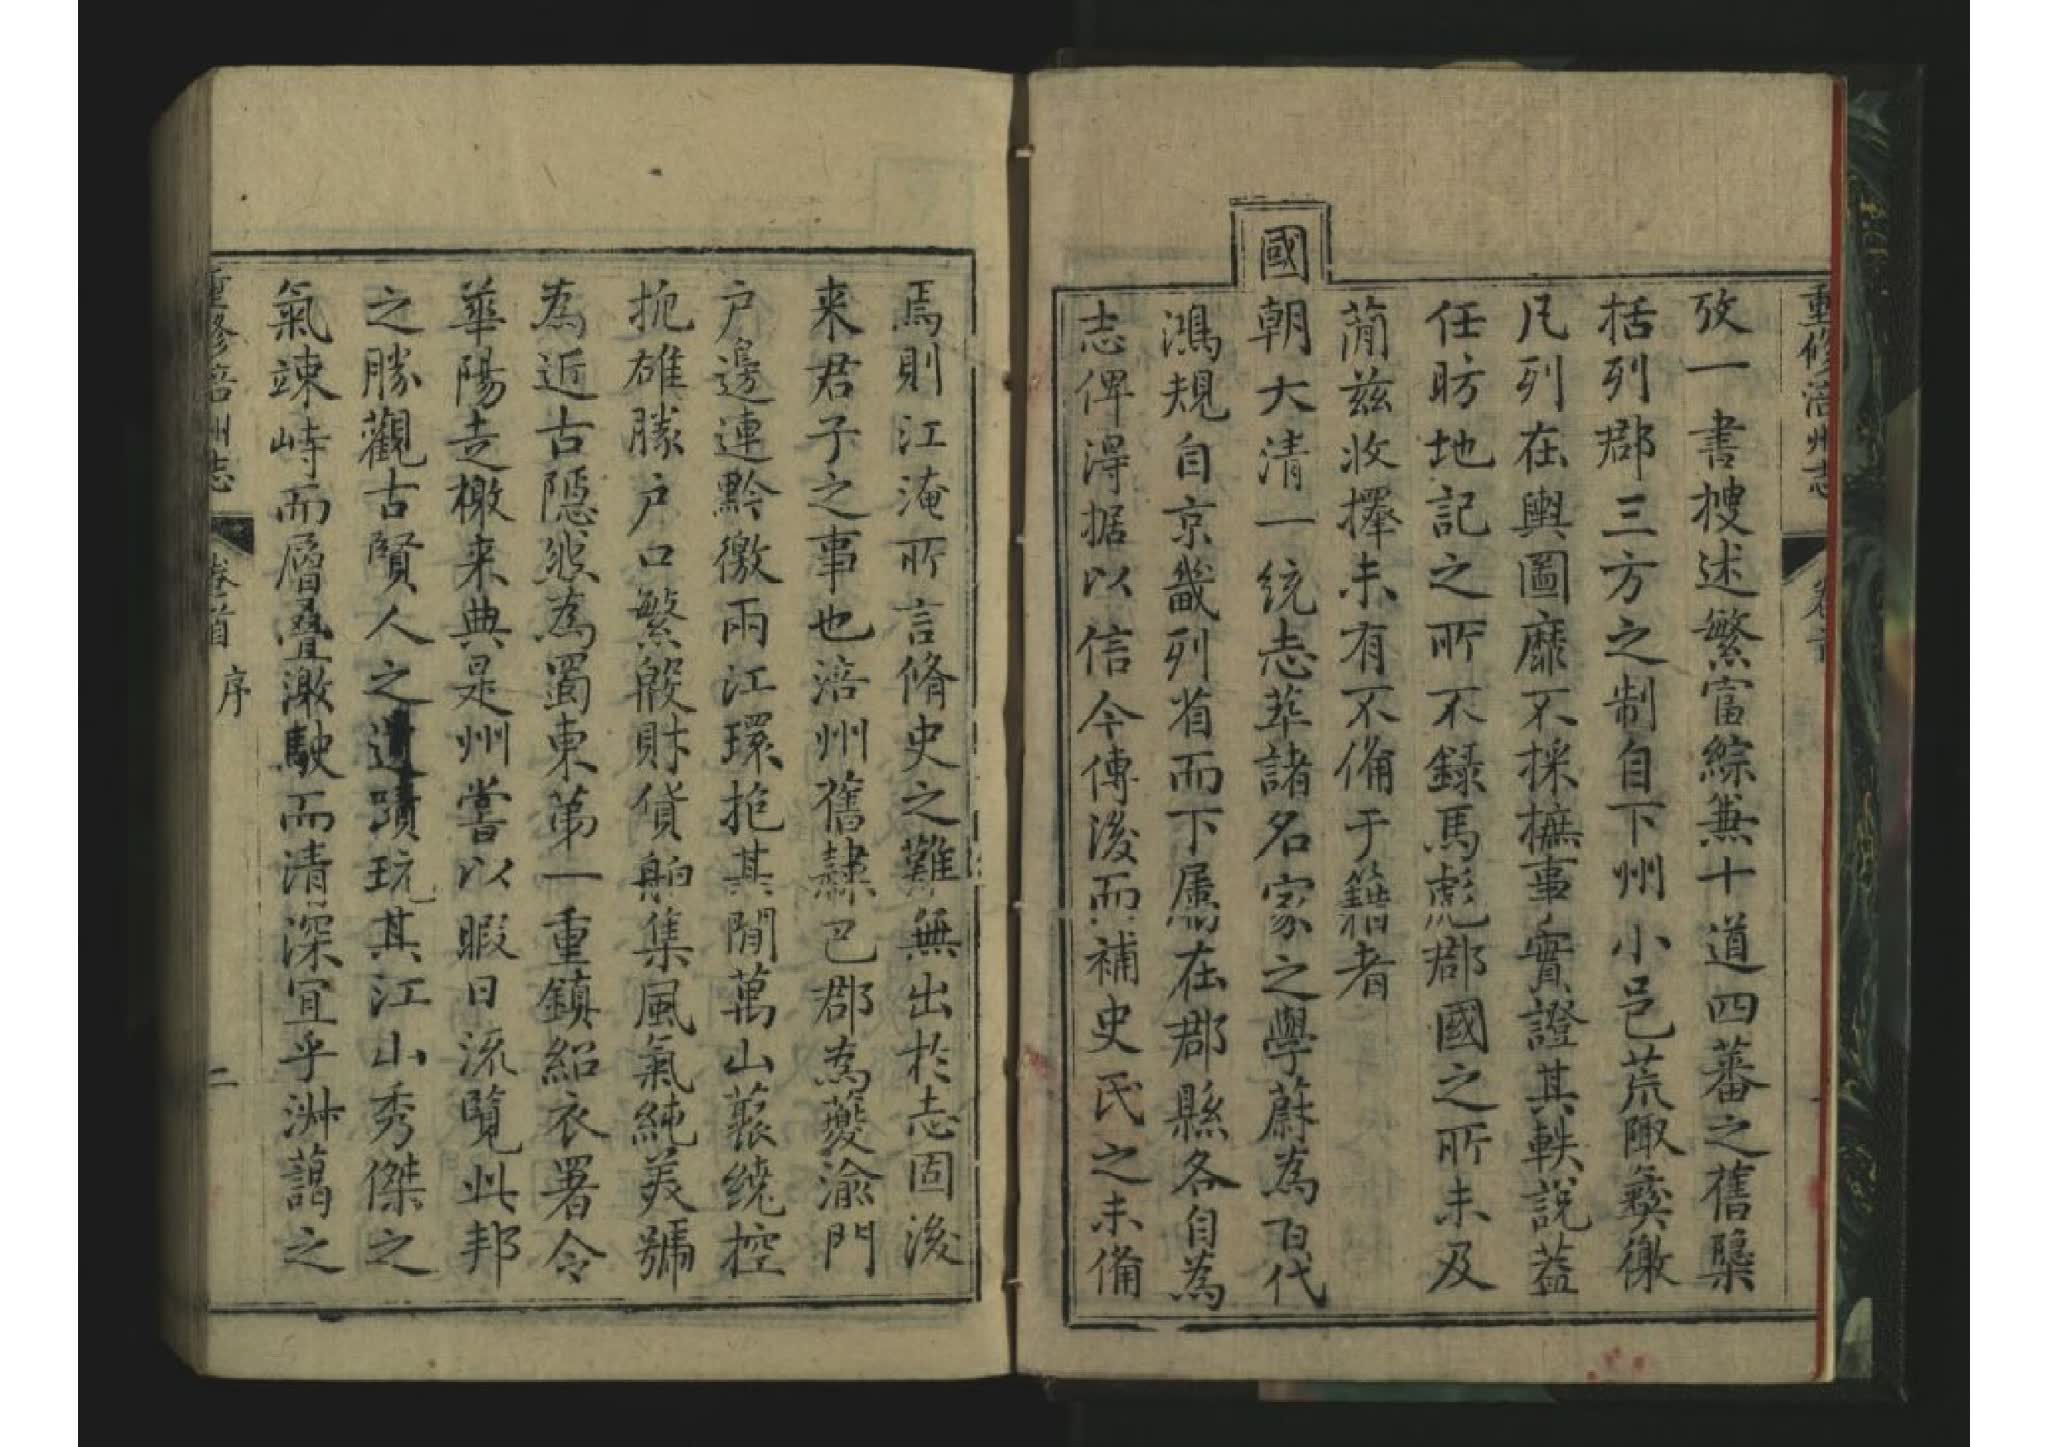 重修涪州志 卷首
攷一書搜述繁富綜兼十道四蕃之舊櫽
括列郡三方之制自下州小邑荒陬彜徼
凡列在輿圖靡不採摭事實證其軼說葢
任昉地記之所不録馬彪郡國之所未及
蕳兹收擇未有不備于籍者
國朝大清一統志萃諸名家之學蔚為百代
鴻規自京畿列省而下屬在郡縣各自為
志俾淂据以信今傳後而補史氏之未備
焉則江淹所言脩史之難無出於志固後
来君子之事也涪州舊隷巴郡為夔渝門
户邊連黔徼兩江環抱其閒萬山蔉繞控
扼雄勝户口繁殷財貨舶集風氣純美號
為近古隱然為蜀東第一重鎮紹衣署令
華陽㐫檄来典是州嘗以暇日流覽此邦
之勝觀古賢人之遺蹟玩其江山秀傑之
氣竦峙而層叠激駛而清深宜乎渊藹之
重修涪州志 卷首 序 二